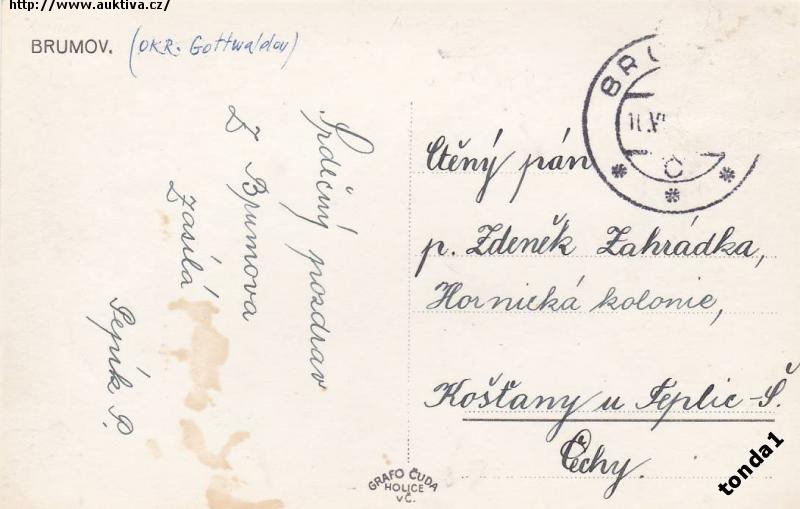 http://www.auktiva.cz/
BRUMOV. (OKR. Gottwaldov)
Srdečný pozdrav
Z Brumova
zasílá
Pepík P.
Ctěný pán
p. Zdeněk Zahrádka,
Hornická kolonie,
Košťany u Teplic-Š.
Čechy.
GRAFO ČUDA
HOLICE
VČ.
tonda1